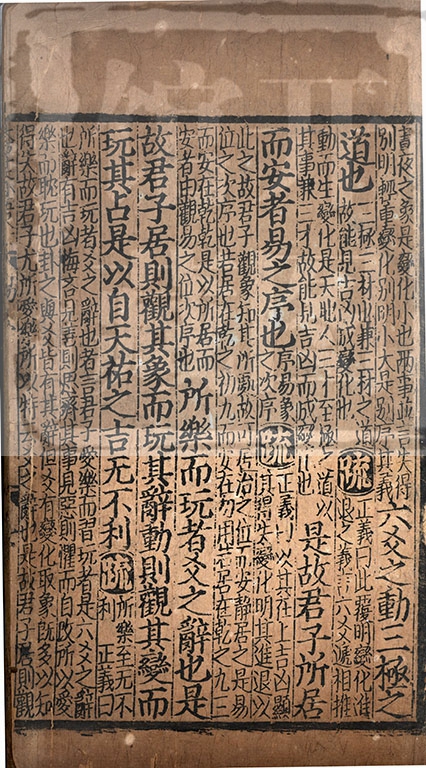 晝夜之象是變化也兩事並言失得
別明輕重變化別明小大是別序其義
六爻之動三極之
道也
三極三材也兼三材之道
故能見吉凶成變化也
疏
正義曰此覆明變化進
退之義言六爻遞相推
動而生變化是天地人三才至極之道以
其事兼三才故能見吉凶而成變化也
是故君子所居
而安者易之序也
序易象
之次序
疏
正義曰以其在上吉凶顯
其得失變化明其進退以
此之故君子觀象知其所處故可居治之位而安靜居之是易
位之次序也若居在乾之初九而安在勿用若居在乾之九三
而安在乾乾是以所居而
安者由觀易之位次序也
所樂而玩者爻之辭也是
故君子居則觀其象而玩其辭動則觀其變而
玩其占是以自天祐之吉无不利
疏
所樂至无不
利 正義曰
所樂而玩者爻之辭也者言君子愛樂而習玩者是六爻之辭
也辭有吉凶悔吝見善則思齊其事見惡則懼而自改所以愛
樂而耽玩也卦之與爻皆有其辭但爻有變化取象既多以知
得失故君子尤所愛樂所以特云爻之辭也是故君子居則觀